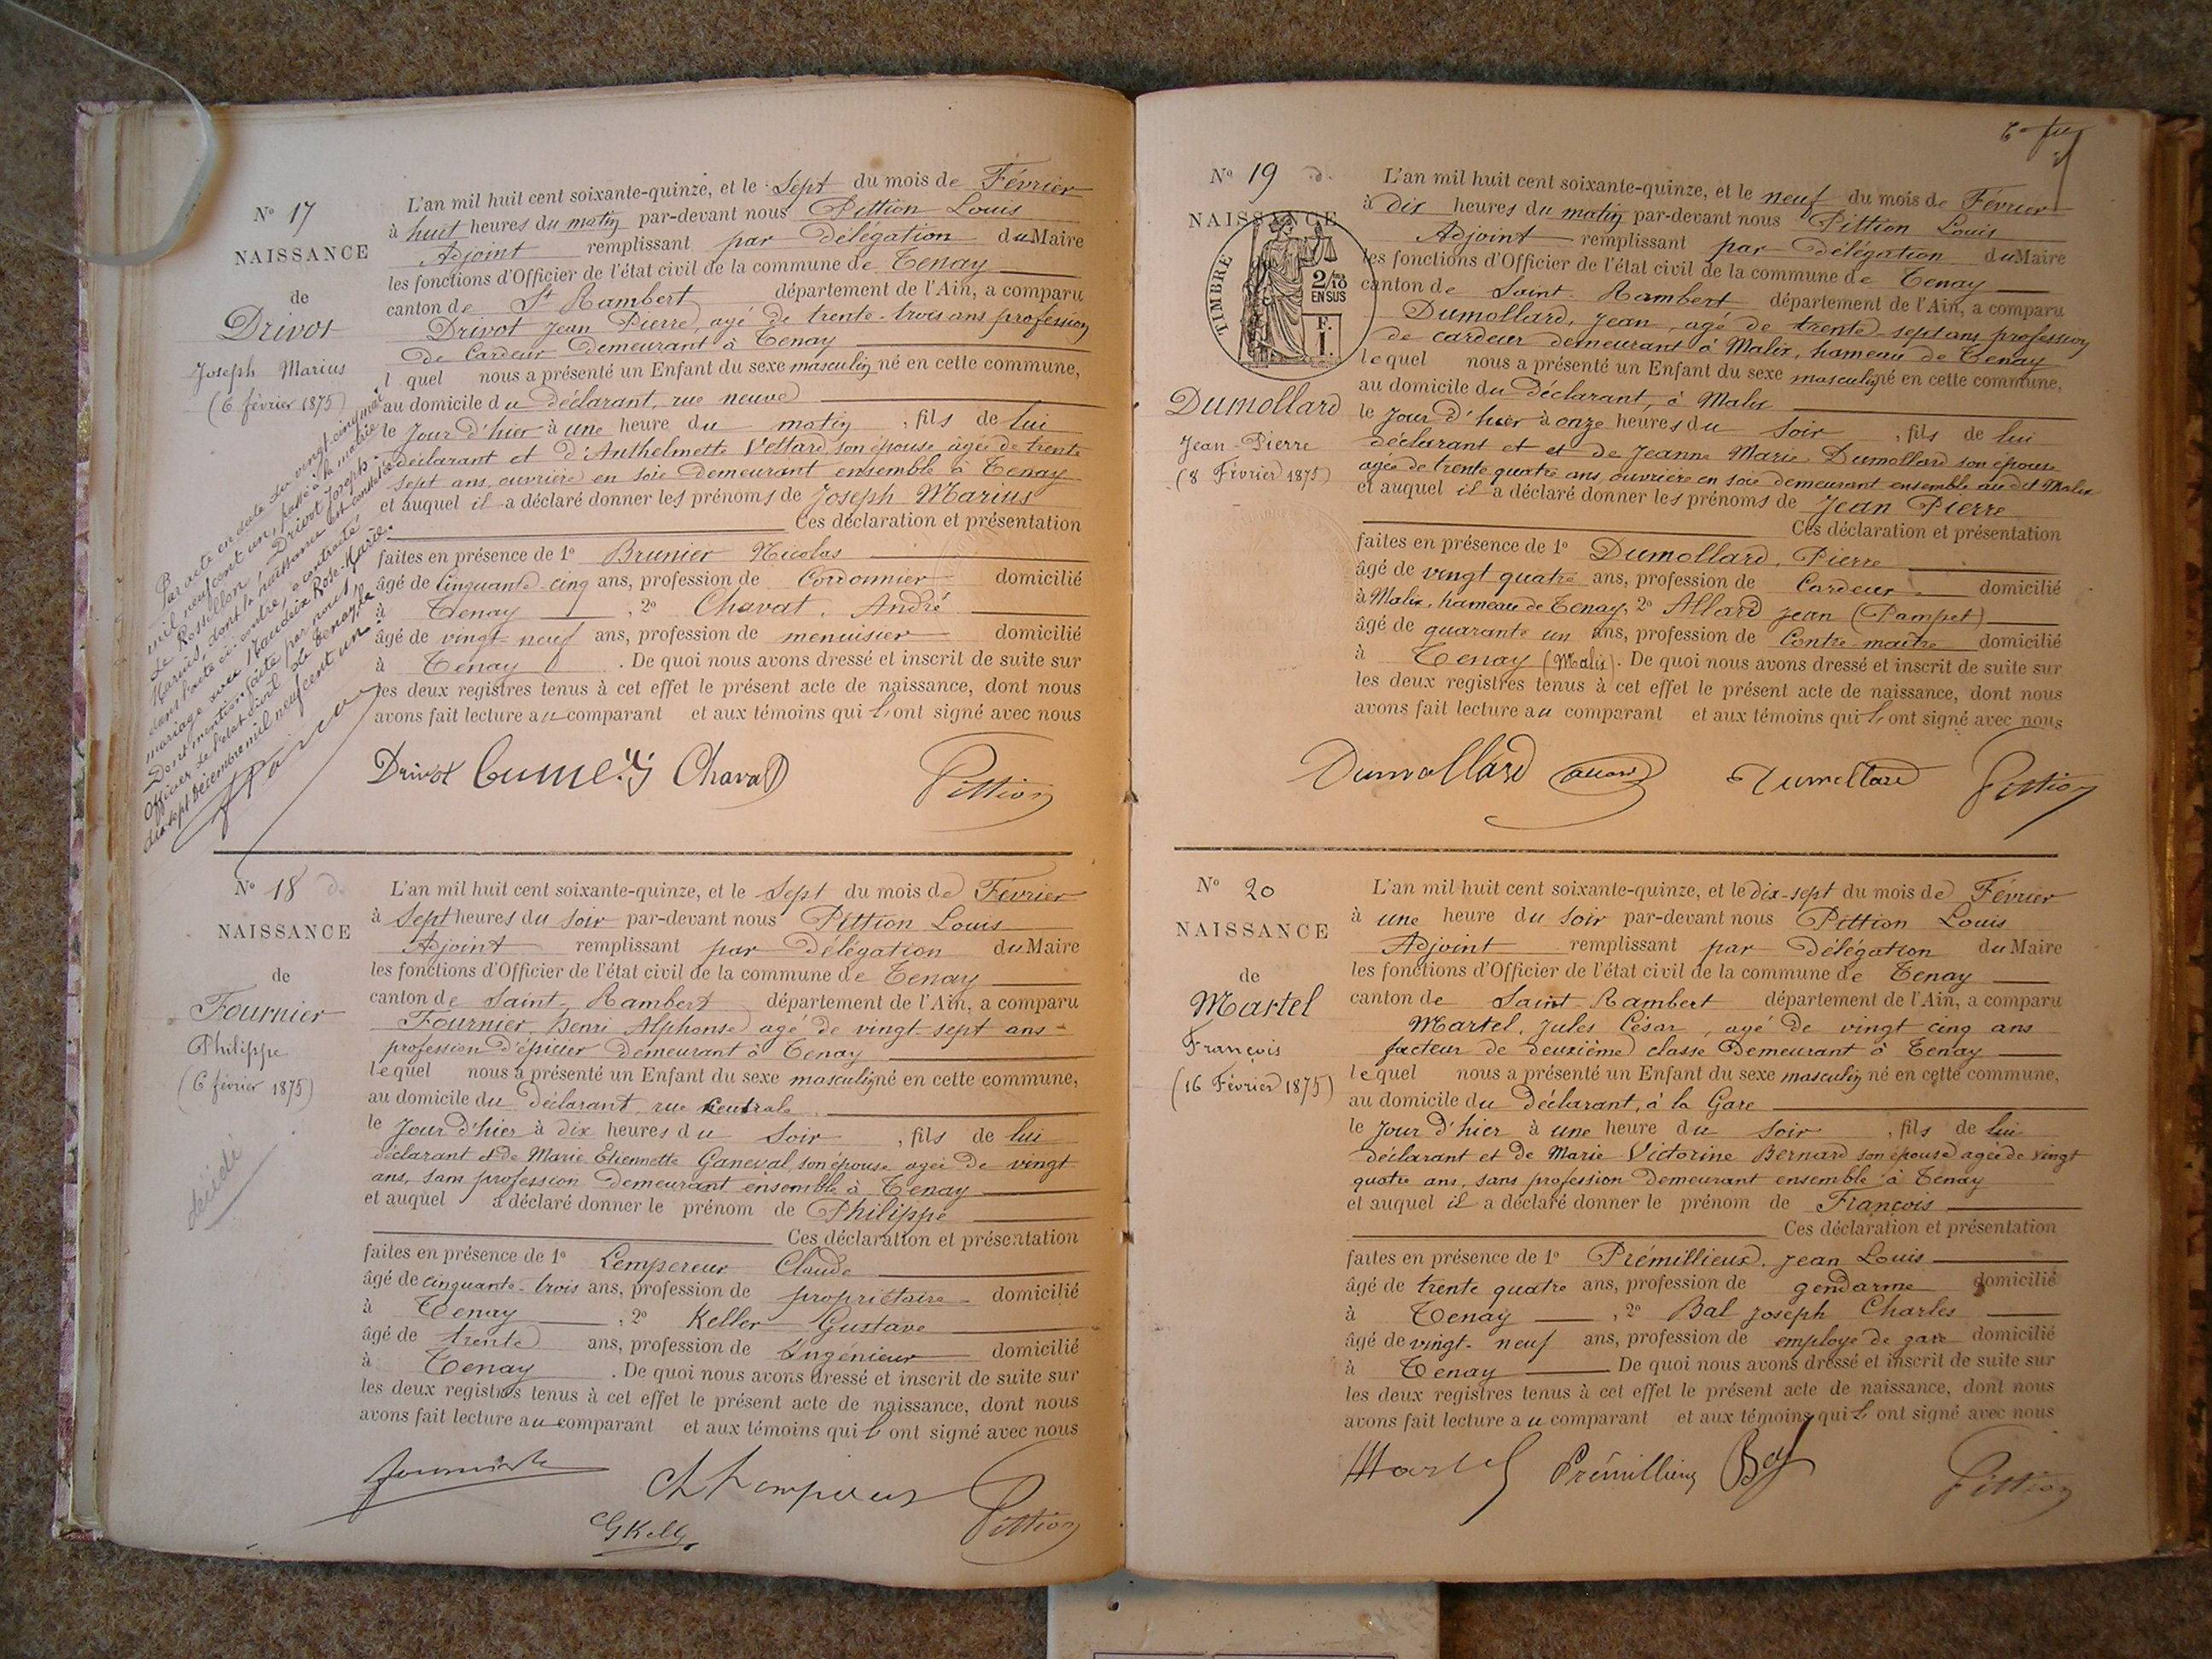 N° 17
NAISSANCE
de
Drivot
Joseph Marius
(6 février 1875)
Par acte en date du vingt cinq mai
mil neuf cent un, passé à la mairie
de Rossillon, Drivot Joseph-
Marius, dont la naissance est constatée
dans l'acte ci-contre, a contracté
mariage avec Rose-Marie.
Dont mention faite par nous,
Officier de l'état civil de Tenay, le
dix sept Décembre mil neuf cent un
L'an mil huit cent soixante-quinze, et le Sept du mois de Février
à huit heures du matin par-devant nous Pittion Louis
Adjoint remplissant par Délégation du Maire
les fonctions d'Officier de l'état civil de la commune de Tenay
canton de St Rambert département de l'Ain, a comparu
Drivot Jean Pierre, agé de trente-trois ans profession
de Cardeur Demeurant à Tenay
l quel nous a présenté un Enfant du sexe masculin né en cette commune,
au domicile du Déclarant, rue neuve
le Jour d'hier à une heure du matin, fils de lui
déclarant et d'Anthelmette Vettard son épouse âgée de trente
sept ans, ouvrière en soie Demeurant ensemble à Tenay
et auquel il a déclaré donner les prénoms de Joseph Marius
Ces déclaration et présentation
faites en présence de 1° Brunier Nicolas
âgé de Cinquante-cinq ans, profession de Cordonnier domicilié
à Tenay, 2° Chavat, André
âgé de vingt-neuf ans, profession de menuisier domicilié
à Tenay. De quoi nous avons dressé et inscrit de suite sur
les deux registres tenus à cet effet le présent acte de naissance, dont nous
avons fait lecture au comparant et aux témoins qui l'ont signé avec nous
Drivot Chavat Pittion
N° 18 d.
NAISSANCE
de
Fournier
Philippe
(6 février 1875)
décédé
L'an mil huit cent soixante-quinze, et le Sept du mois de Février
à Sept heures du soir par-devant nous Pittion Louis
Adjoint remplissant par Délégation du Maire
les fonctions d'Officier de l'état civil de la commune de Tenay
canton de Saint-Rambert département de l'Ain, a comparu
Fournier Henri Alphonse agé de vingt-sept ans
profession D'épicier Demeurant à Tenay
lequel nous a présenté un Enfant du sexe masculin né en cette commune,
au domicile du Déclarant, rue Centrale
le Jour d'hier à dix heures du Soir, fils de lui
déclarant et de Marie Etiennette Ganeval, son épouse agée De vingt
ans, sans profession Demeurant ensemble à Tenay
et auquel a déclaré donner le prénom de Philippe
Ces déclaration et présentation
faites en présence de 1° Lempereur Claude
âgé de cinquante-trois ans, profession de propriétaire domicilié
à Tenay, 2° Keller Gustave
âgé de trente ans, profession de Ingénieur domicilié
à Tenay. De quoi nous avons dressé et inscrit de suite sur
les deux registres tenus à cet effet le présent acte de naissance, dont nous
avons fait lecture au comparant et aux témoins qui l'ont signé avec nous
Pittion
N° 19 d.
NAISSANCE
TIMBRE
2/10
EN SUS
F.
1.
Dumollard
Jean-Pierre
(8 Février 1875)
L'an mil huit cent soixante-quinze, et le neuf du mois de Février
à dix heures du matin par-devant nous Pittion Louis
Adjoint remplissant par Délégation du Maire
les fonctions d'Officier de l'état civil de la commune de Tenay
canton de Saint-Rambert département de l'Ain, a comparu
Dumollard, Jean, agé de trente-sept ans profession
de cardeur demeurant à Malix, hameau de Tenay
lequel nous a présenté un Enfant du sexe masculin né en cette commune,
au domicile du Déclarant, à Malix
le Jour d'hier à onze heures du Soir, fils de lui
déclarant et et de Jeanne Marie Dumollard son épouse
agée de trente quatre ans, ouvrière en soie demeurant ensemble au dit Malix
et auquel il a déclaré donner les prénoms de Jean Pierre
Ces déclaration et présentation
faites en présence de 1° Dumollard, Pierre
âgé de vingt quatre ans, profession de Cardeur domicilié
à Malix, hameau de Tenay, 2° Allard Jean (Pampet)
âgé de quarante un ans, profession de Contre-maître domicilié
à Tenay (Malix). De quoi nous avons dressé et inscrit de suite sur
les deux registres tenus à cet effet le présent acte de naissance, dont nous
avons fait lecture au comparant et aux témoins qui l'ont signé avec nous
Dumollard Allard Dumollard Pittion
N° 20
NAISSANCE
de
Martel
François
(16 Février 1875)
L'an mil huit cent soixante-quinze, et le dix-sept du mois de Février
à une heure du Soir par-devant nous Pittion Louis
Adjoint remplissant par Délégation du Maire
les fonctions d'Officier de l'état civil de la commune de Tenay
canton de Saint Rambert département de l'Ain, a comparu
Martel, Jules César, agé de vingt cinq ans
facteur de deuxième classe Demeurant à Tenay
lequel nous a présenté un Enfant du sexe masculin né en cette commune,
au domicile du Déclarant, à la Gare
le Jour d'hier à une heure du Soir, fils de lui
déclarant et de Marie Victorine Bernard son épouse agée de vingt
quatre ans, sans profession Demeurant ensemble à Tenay
et auquel il a déclaré donner le prénom de François
Ces déclaration et présentation
faites en présence de 1° Prémillieux, Jean Louis
âgé de trente quatre ans, profession de gendarme domicilié
à Tenay, 2° Bal Joseph Charles
âgé de vingt-neuf ans, profession de employé de gare domicilié
à Tenay De quoi nous avons dressé et inscrit de suite sur
les deux registres tenus à cet effet le présent acte de naissance, dont nous
avons fait lecture au comparant et aux témoins qui l'ont signé avec nous
Martel Prémillieux Bal Pittion